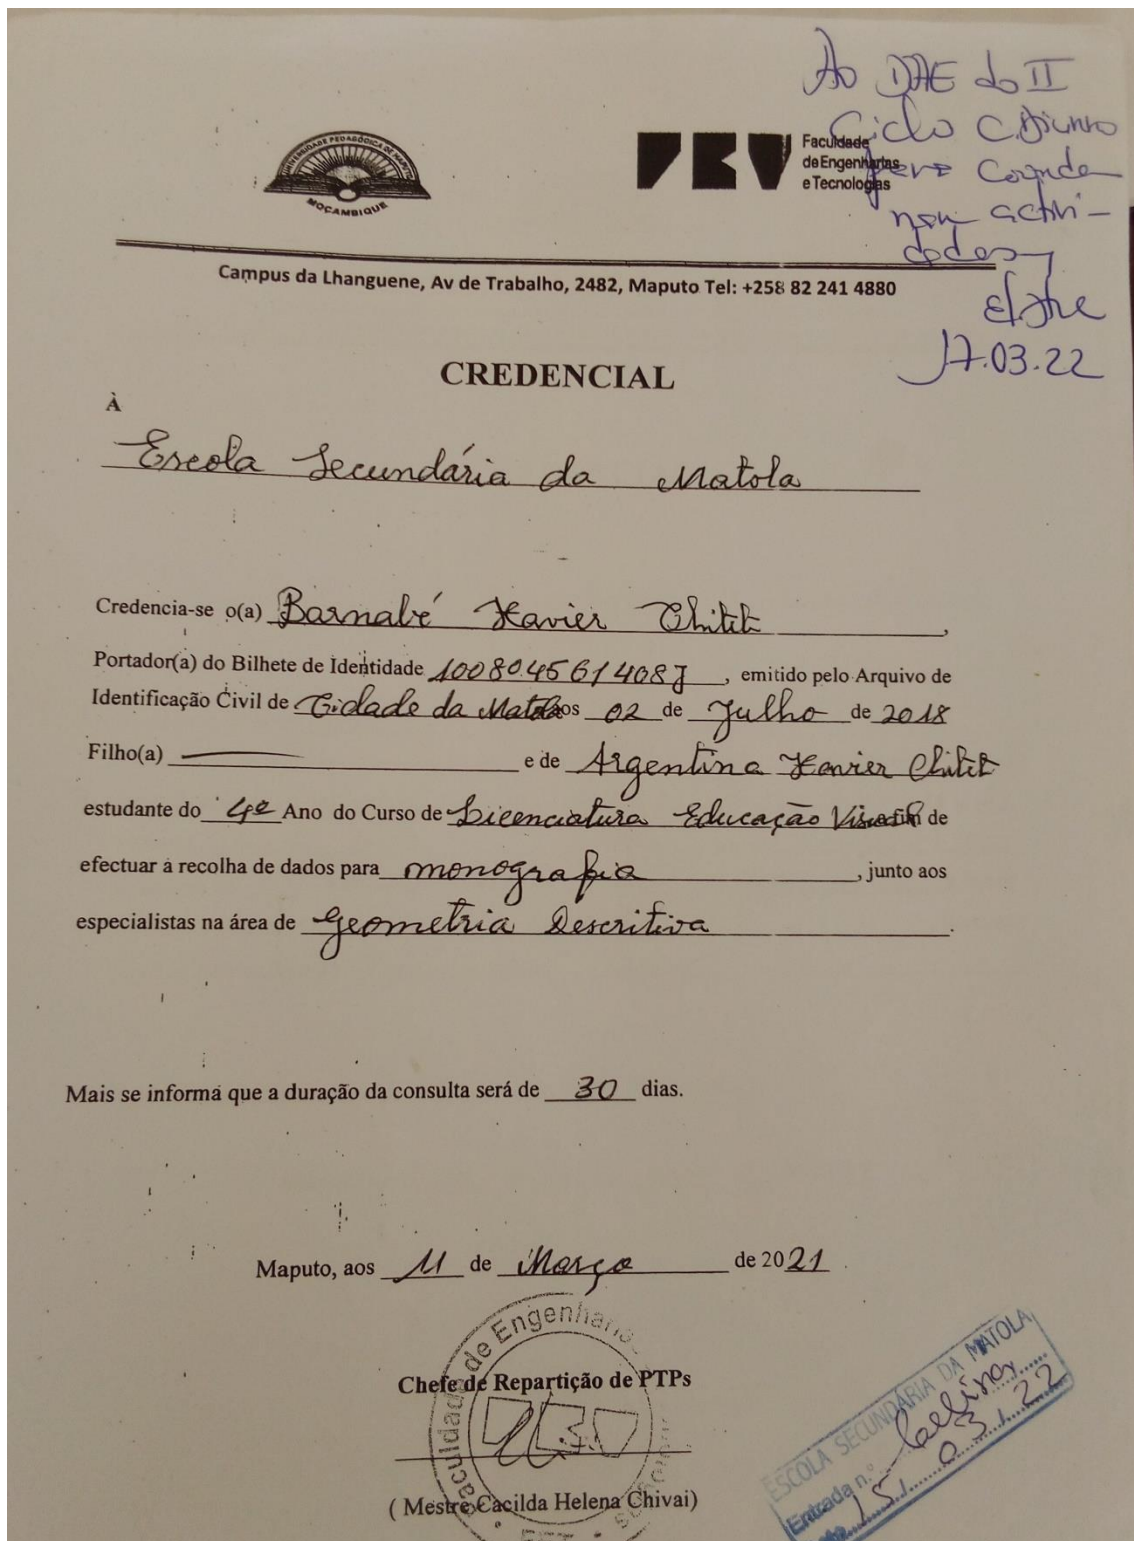 Ao DAE do II
Ciclo C. Diurno
para
nas activi-
dades
17.03.22
UNIVERSIDADE PEDAGÓGICA DE MAPUTO
MOÇAMBIQUE
Faculdade
de Engenharias
e Tecnologias
Campus da Lhanguene, Av de Trabalho, 2482, Maputo Tel: +258 82 241 4880
CREDENCIAL
À
Escola Secundária da Matola
Credencia-se o(a) Barnabé Xavier Chitit,
Portador(a) do Bilhete de Identidade 100804561408J, emitido pelo Arquivo de
Identificação Civil de Cidade da Matola aos 02 de Julho de 2018
Filho(a) e de Argentina Xavier Chitit
estudante do 4º Ano do Curso de Licenciatura Educação Visual fim de
efectuar a recolha de dados para monografia, junto aos
especialistas na área de Geometria Descritiva.
Mais se informa que a duração da consulta será de 30 dias.
Maputo, aos 11 de Março de 2021
Faculdade de Engenharias
Chefe de Repartição de PTPs
(Mestre Cacilda Helena Chivai)
FET
ESCOLA SECUNDÁRIA DA MATOLA
Entrada n.º
15/03/22